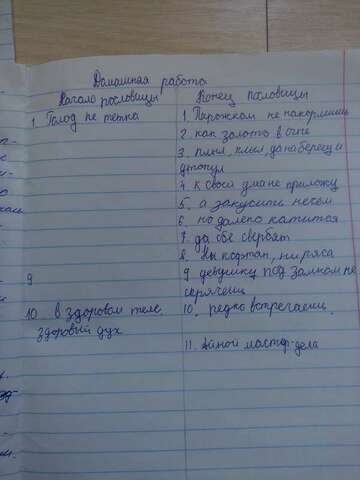 Домашная работа
Начало пословицы Конец пословицы
1. Голод не тетка 1. Пирожком не накормишь
2. как золото в огне
3. плыл, плыл, да на берегу и
утонул
4. к своей ума не приложу
5. а закусить нечем
6. но далеко катится
7. да обе свербят
8. ни кафтан, ни ряса
9 9 девушку под замком не
спрячешь
10. в здоровом теле 10. редко встречаешь
здоровый дух
11. Иной мастер-дела